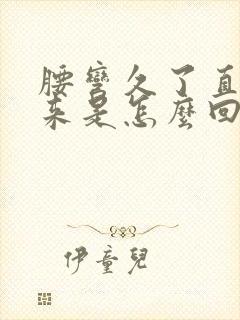 腰彎久了直
來是怎麼回
伊童兒